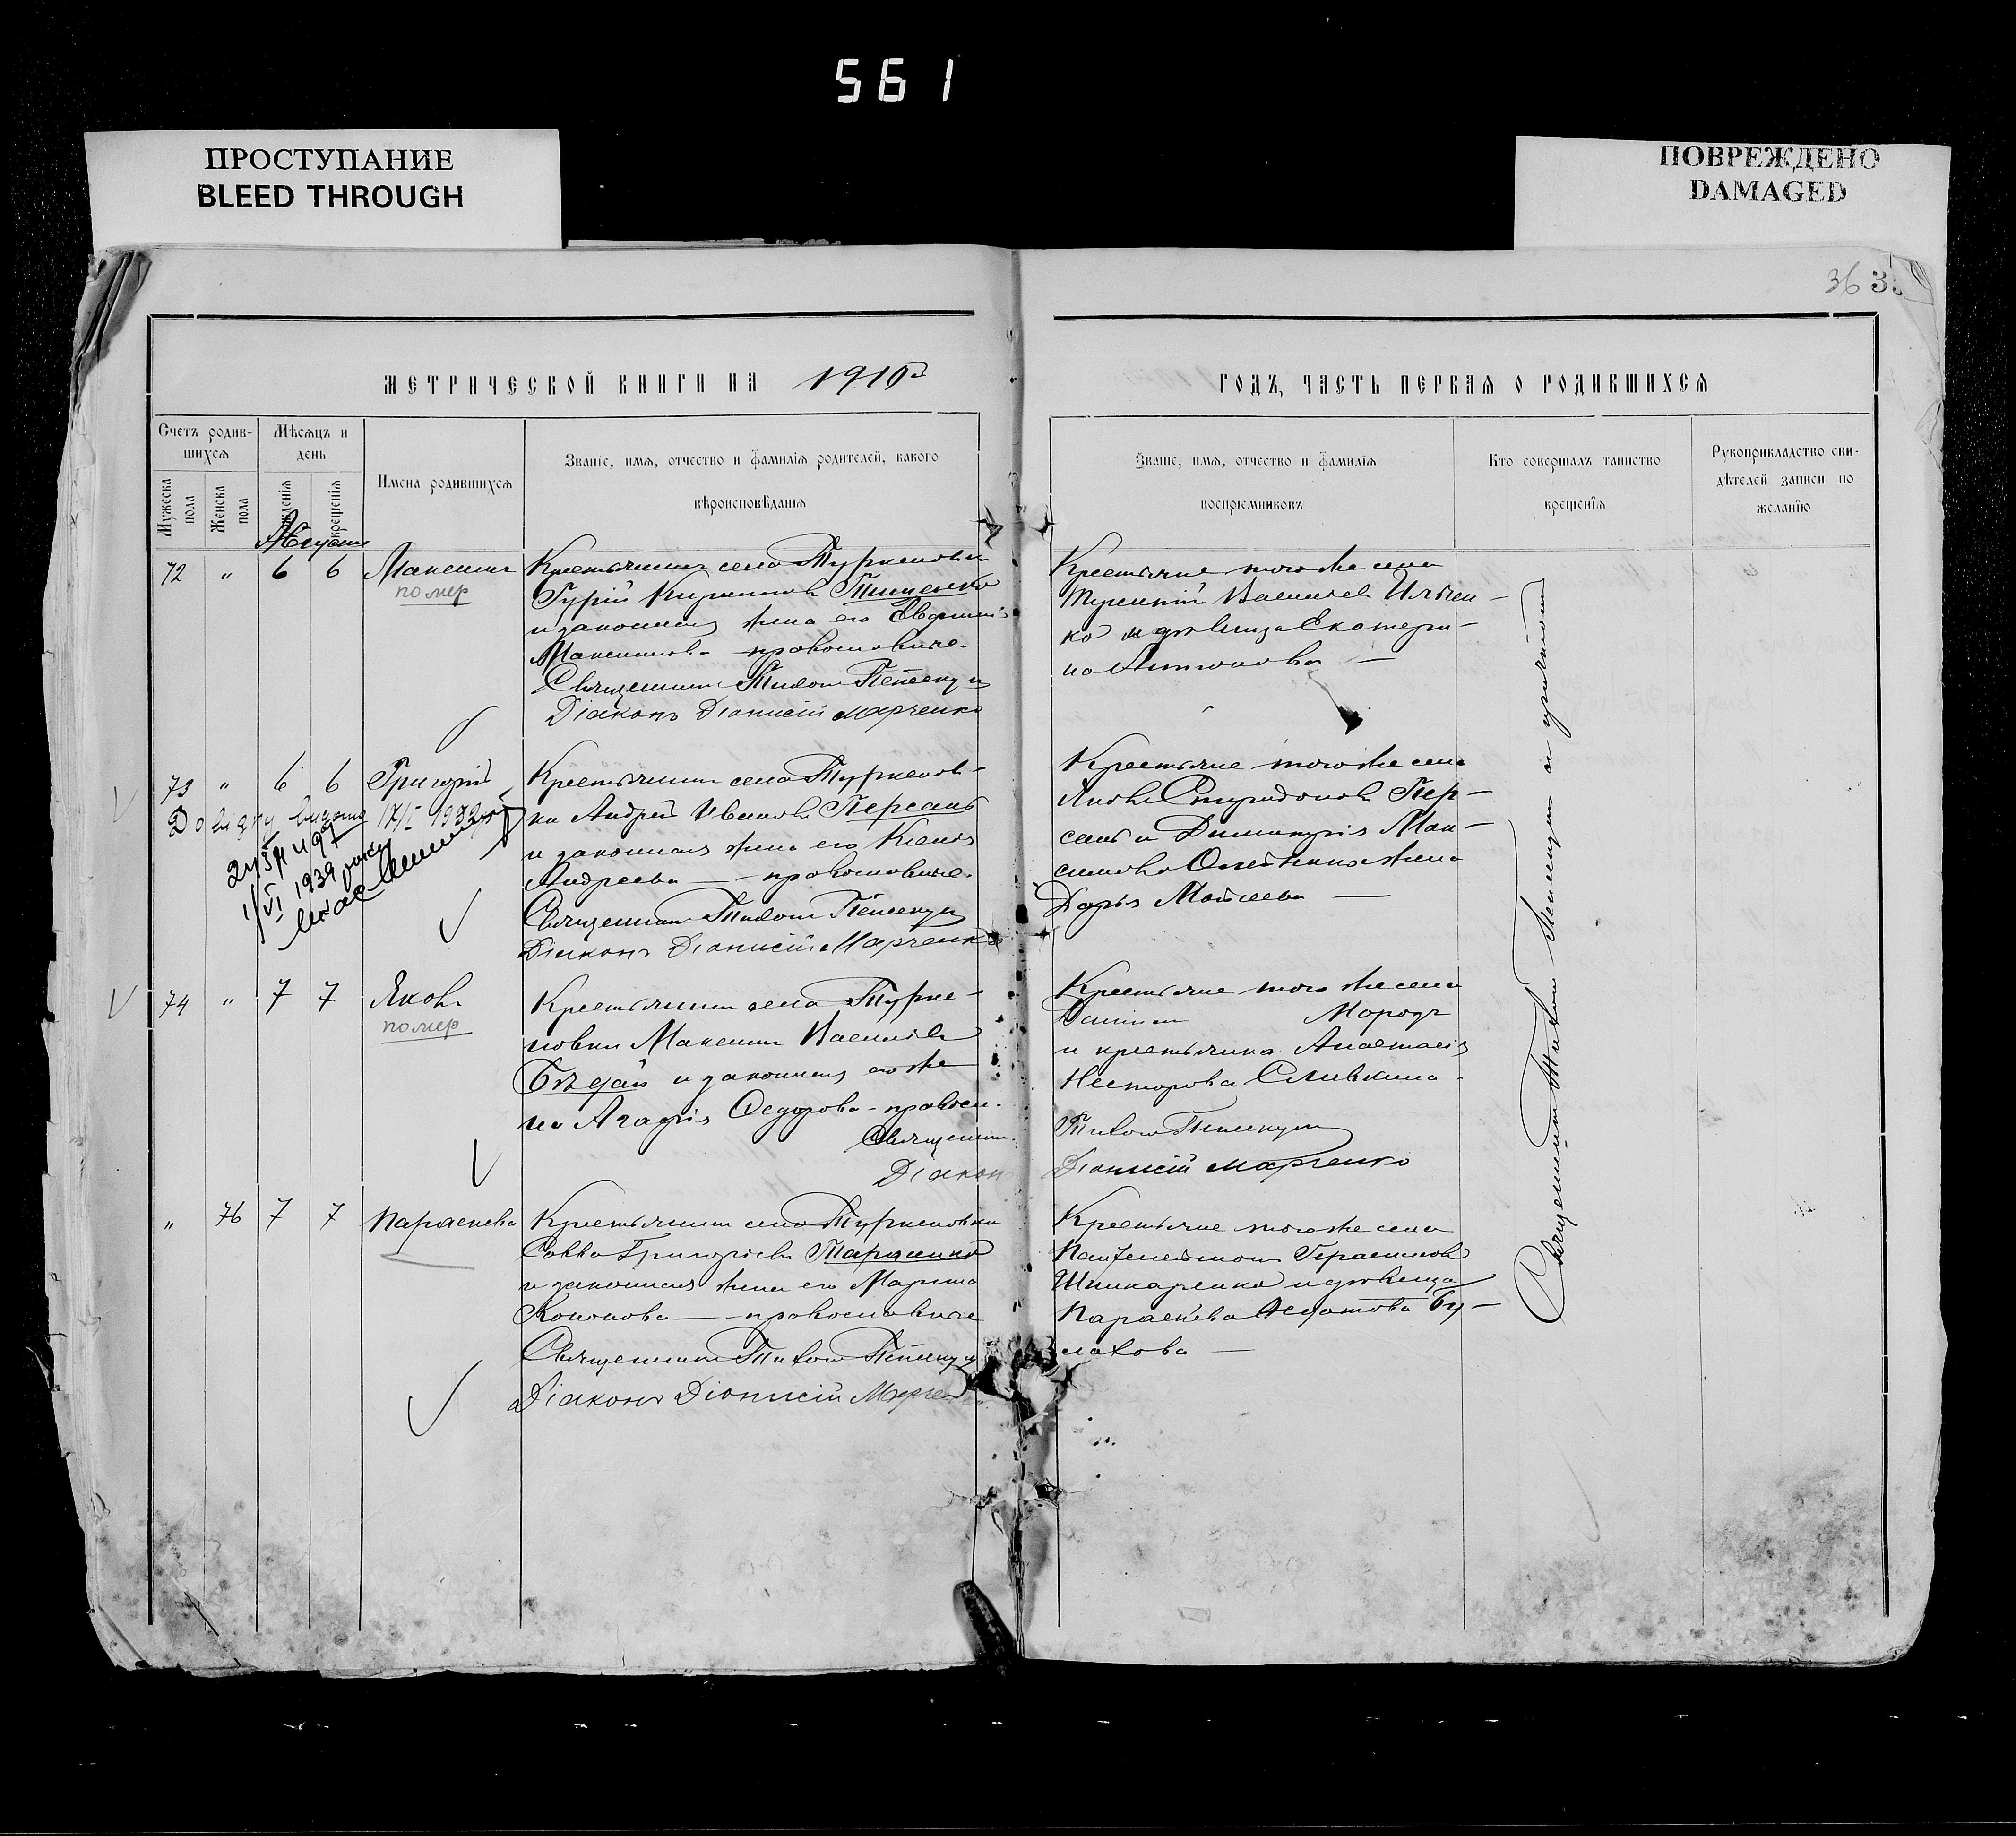 561
ПРОСТУПАНИЕ
BLEED THROUGH
ПОВРЕЖДЕНО
DAMAGED
36
МЕТРИЧЕСКОЙ КНИГИ НА 1910й
ГОДЪ, ЧАСТЬ ПЕРВАЯ О РОДИВШИХСЯ
Счетъ родив-
шихся
Мѣсяцъ и
день
Мужеска
пола
Женска
пола
рожденія
крещенія
Имена родившихся
Званіе, имя, отчество и фамилія родителей, какого
вѣроисповѣданія
Званіе, имя, отчество и фамилія
воспріемниковъ
Кто совершалъ таинство
крещенія
Рукоприкладство сви-
дѣтелей записи по
желанію
72 " 6 6 Максимъ
помер
Крестьянинъ села Туркеновки
Гурій Тищенко
и законная жена его
православные
Священникъ Тихонъ
Діаконъ Діонисій Марченко
Крестьяне того же села
Васильевъ Ильен-
ко и дѣвица Екатери-
на Антонова
73 " 6 6 Григорій
17/I 1932
1/VI 1939
Крестьянинъ села Туркенов-
ки Андрей Ивановъ Персань
и законная жена его Ксенія
Андреева — православные
Священникъ Тихонъ
Діаконъ Діонисій Марченко
Крестьяне того же села
Яковъ Спиридоновъ Пер-
сань и Димитрія Мак-
симова Олейника жена
Дарья Мойсеева
74 " 7 7 Яковъ
помер
Крестьянинъ села Турке-
новки Максимъ Васильевъ
и законная его же-
на Агафія Федорова - правосл.
Священник
Діакон
Крестьяне того же села
Мородъ
и крестьянка Анастасія
Несторова Сливкина
Тихонъ
Діонисій Марченко
" 76 7 7 Параскева
Крестьянинъ села Туркеновки
Савва Григорьевъ Тараненко
и законная жена его Марина
Кононова — православные
Священникъ Тихонъ
Діаконъ Діонисій Марченко
Крестьяне того же села
Пантелеймонъ Герасимовъ
Шинкаренко и дѣвица
Параскева Бу-
лахова
Священникъ Тихонъ